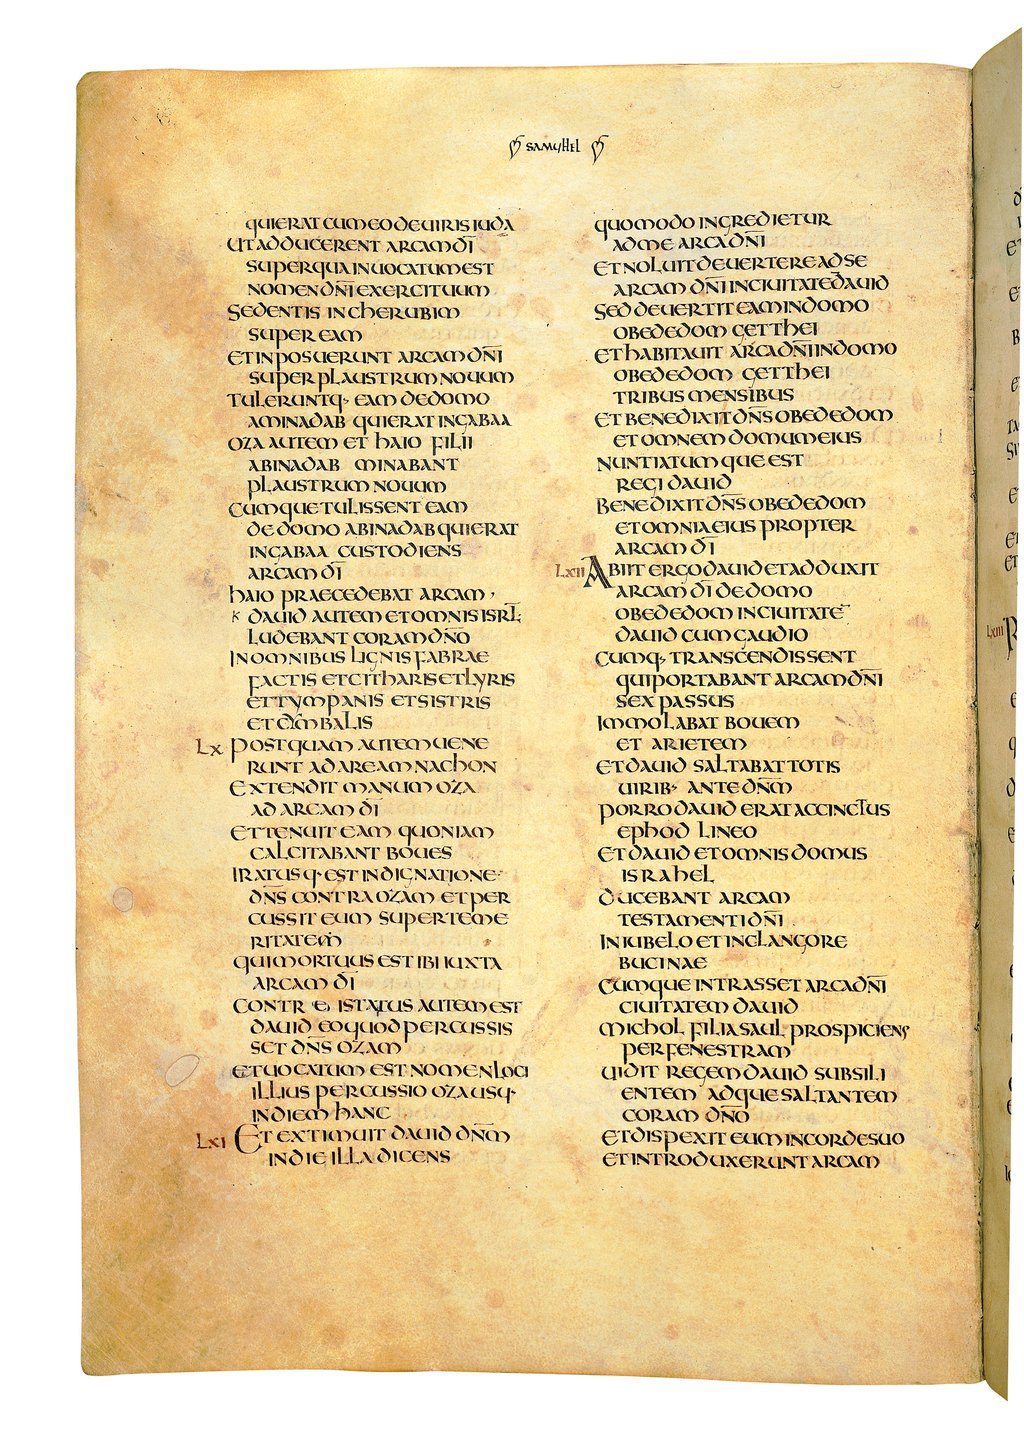 SAMUHEL
QUI ERAT CUM EO DE UIRIS IUDA
UT ADDUCERENT ARCAM DĪ
SUPER QUA INUOCATUM EST
NOMEN DN̄I EXERCITUUM
SEDENTIS IN CHERUBIM
SUPER EAM
ET INPOSUERUNT ARCAM DN̄I
SUPER PLAUSTRUM NOUUM
TULERUNTQ· EAM DE DOMO
AMINADAB QUI ERAT IN GABAA
OZA AUTEM ET HAIO FILII
ABINADAB MINABANT
PLAUSTRUM NOUUM
CUMQUE TULISSENT EAM
DE DOMO ABINADAB QUI ERAT
IN GABAA CUSTODIENS
ARCAM DĪ
HAIO PRAECEDEBAT ARCAM ,
K DAUID AUTEM ET OMNIS ISRL̄
LUDEBANT CORAM DN̄O
IN OMNIBUS LIGNIS FABRAE
FACTIS ET CITHARIS ET LYRIS
ET TYMPANIS ET SISTRIS
ET CYMBALIS
LX POSTQUAM AUTEM UENE
RUNT AD AREAM NACHON
EXTENDIT MANUM OZA
AD ARCAM DĪ
ET TENUIT EAM QUONIAM
CALCITABANT BOUES
IRATUSQ· EST INDIGNATIONE·
DN̄S CONTRA OZAM ET PER
CUSSIT EUM SUPER TEME
RITATEM
QUI MORTUUS EST IBI IUXTA
ARCAM DĪ
CONTR E ISTATUS AUTEM EST
DAUID EO QUOD PERCUSSIS
SET DN̄S OZAM
ET UOCATUM EST NOMEN LOCI
ILLIUS PERCUSSIO OZA USQ·
IN DIEM HANC
LXI ET EXTIMUIT DAUID DN̄M
IN DIE ILLA DICENS
QUOMODO INGREDIETUR
AD ME ARCA DN̄I
ET NOLUIT DEUERTERE AD SE
ARCAM DN̄I IN CIUITATE DAUID
SED DEUERTIT EAM IN DOMO
OBEDEDOM GETTHEI
ET HABITAUIT ARCA DN̄I IN DOMO
OBEDEDOM GETTHEI
TRIBUS MENSIBUS
ET BENEDIXIT DN̄S OBEDEDOM
ET OMNEM DOMUM EIUS
NUNTIATUMQUE EST
REGI DAUID
BENEDIXIT DN̄S OBEDEDOM
ET OMNIA EIUS PROPTER
ARCAM DĪ
LXII ABIIT ERGO DAUID ET ADDUXIT
ARCAM DĪ DE DOMO
OBEDEDOM IN CIUITATĒ
DAUID CUM GAUDIO
CUMQ· TRANSCENDISSENT
QUI PORTABANT ARCAM DN̄I
SEX PASSUS
IMMOLABAT BOUEM
ET ARIETEM
ET DAUID SALTABAT TOTIS
UIRIB· ANTE DN̄M
PORRO DAUID ERAT ACCINCTUS
EPHOD LINEO
ET DAUID ET OMNIS DOMUS
ISRAHEL
DUCEBANT ARCAM
TESTAMENTI DN̄I
IN IUBELO ET IN CLANGORE
BUCINAE
CUMQUE INTRASSET ARCA DN̄I
CIUITATEM DAUID
MICHOL FILIA SAUL PROSPICIENS
PER FENESTRAM
UIDIT REGEM DAUID SUBSILI
ENTEM ADQUE SALTANTEM
CORAM DN̄O
ET DISPEXIT EUM IN CORDE SUO
ET INTRODUXERUNT ARCAM
LXIII